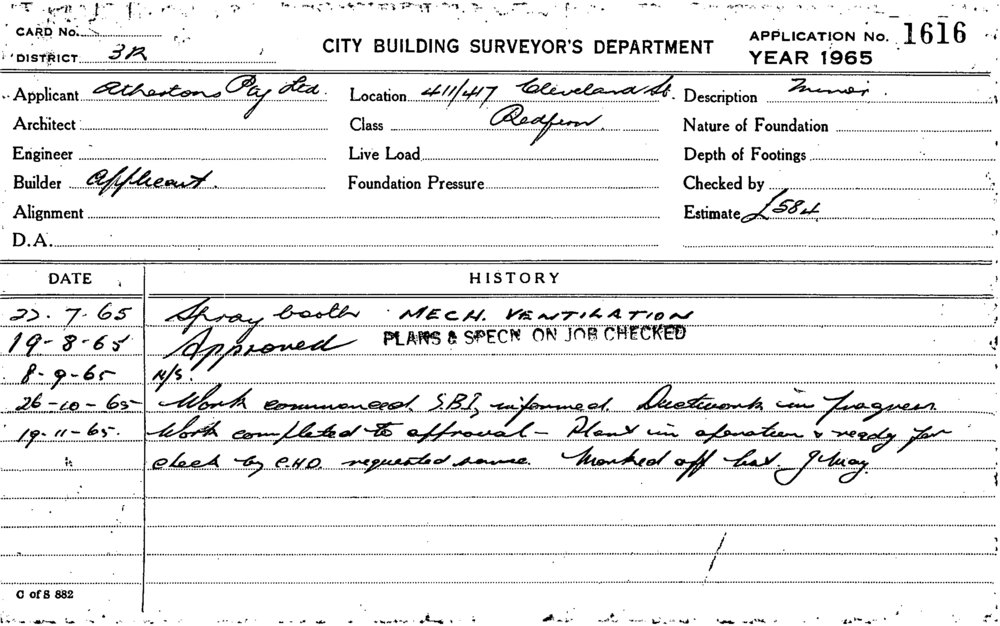 CARD No.
DISTRICT 3R
CITY BUILDING SURVEYOR'S DEPARTMENT
APPLICATION No. 1616
YEAR 1965
Applicant Athertons Pty Ltd.
Location 411/417 Cleveland St.
Description Minor.
Architect
Class Redfern.
Nature of Foundation
Engineer
Live Load
Depth of Footings
Builder Applicant.
Foundation Pressure
Checked by
Alignment
Estimate £584
D.A.
DATE HISTORY
22-7-65 Spray booth MECH. VENTILATION
19-8-65 Approved PLANS & SPECN ON JOB CHECKED
8-9-65 N/S.
26-10-65 Work commenced. S.B.I. informed. Ductwork in progress
19-11-65. Work completed to approval - Plant in operation & ready for
check by C.H.O. requested same. Marked off list. J May
C of S 882